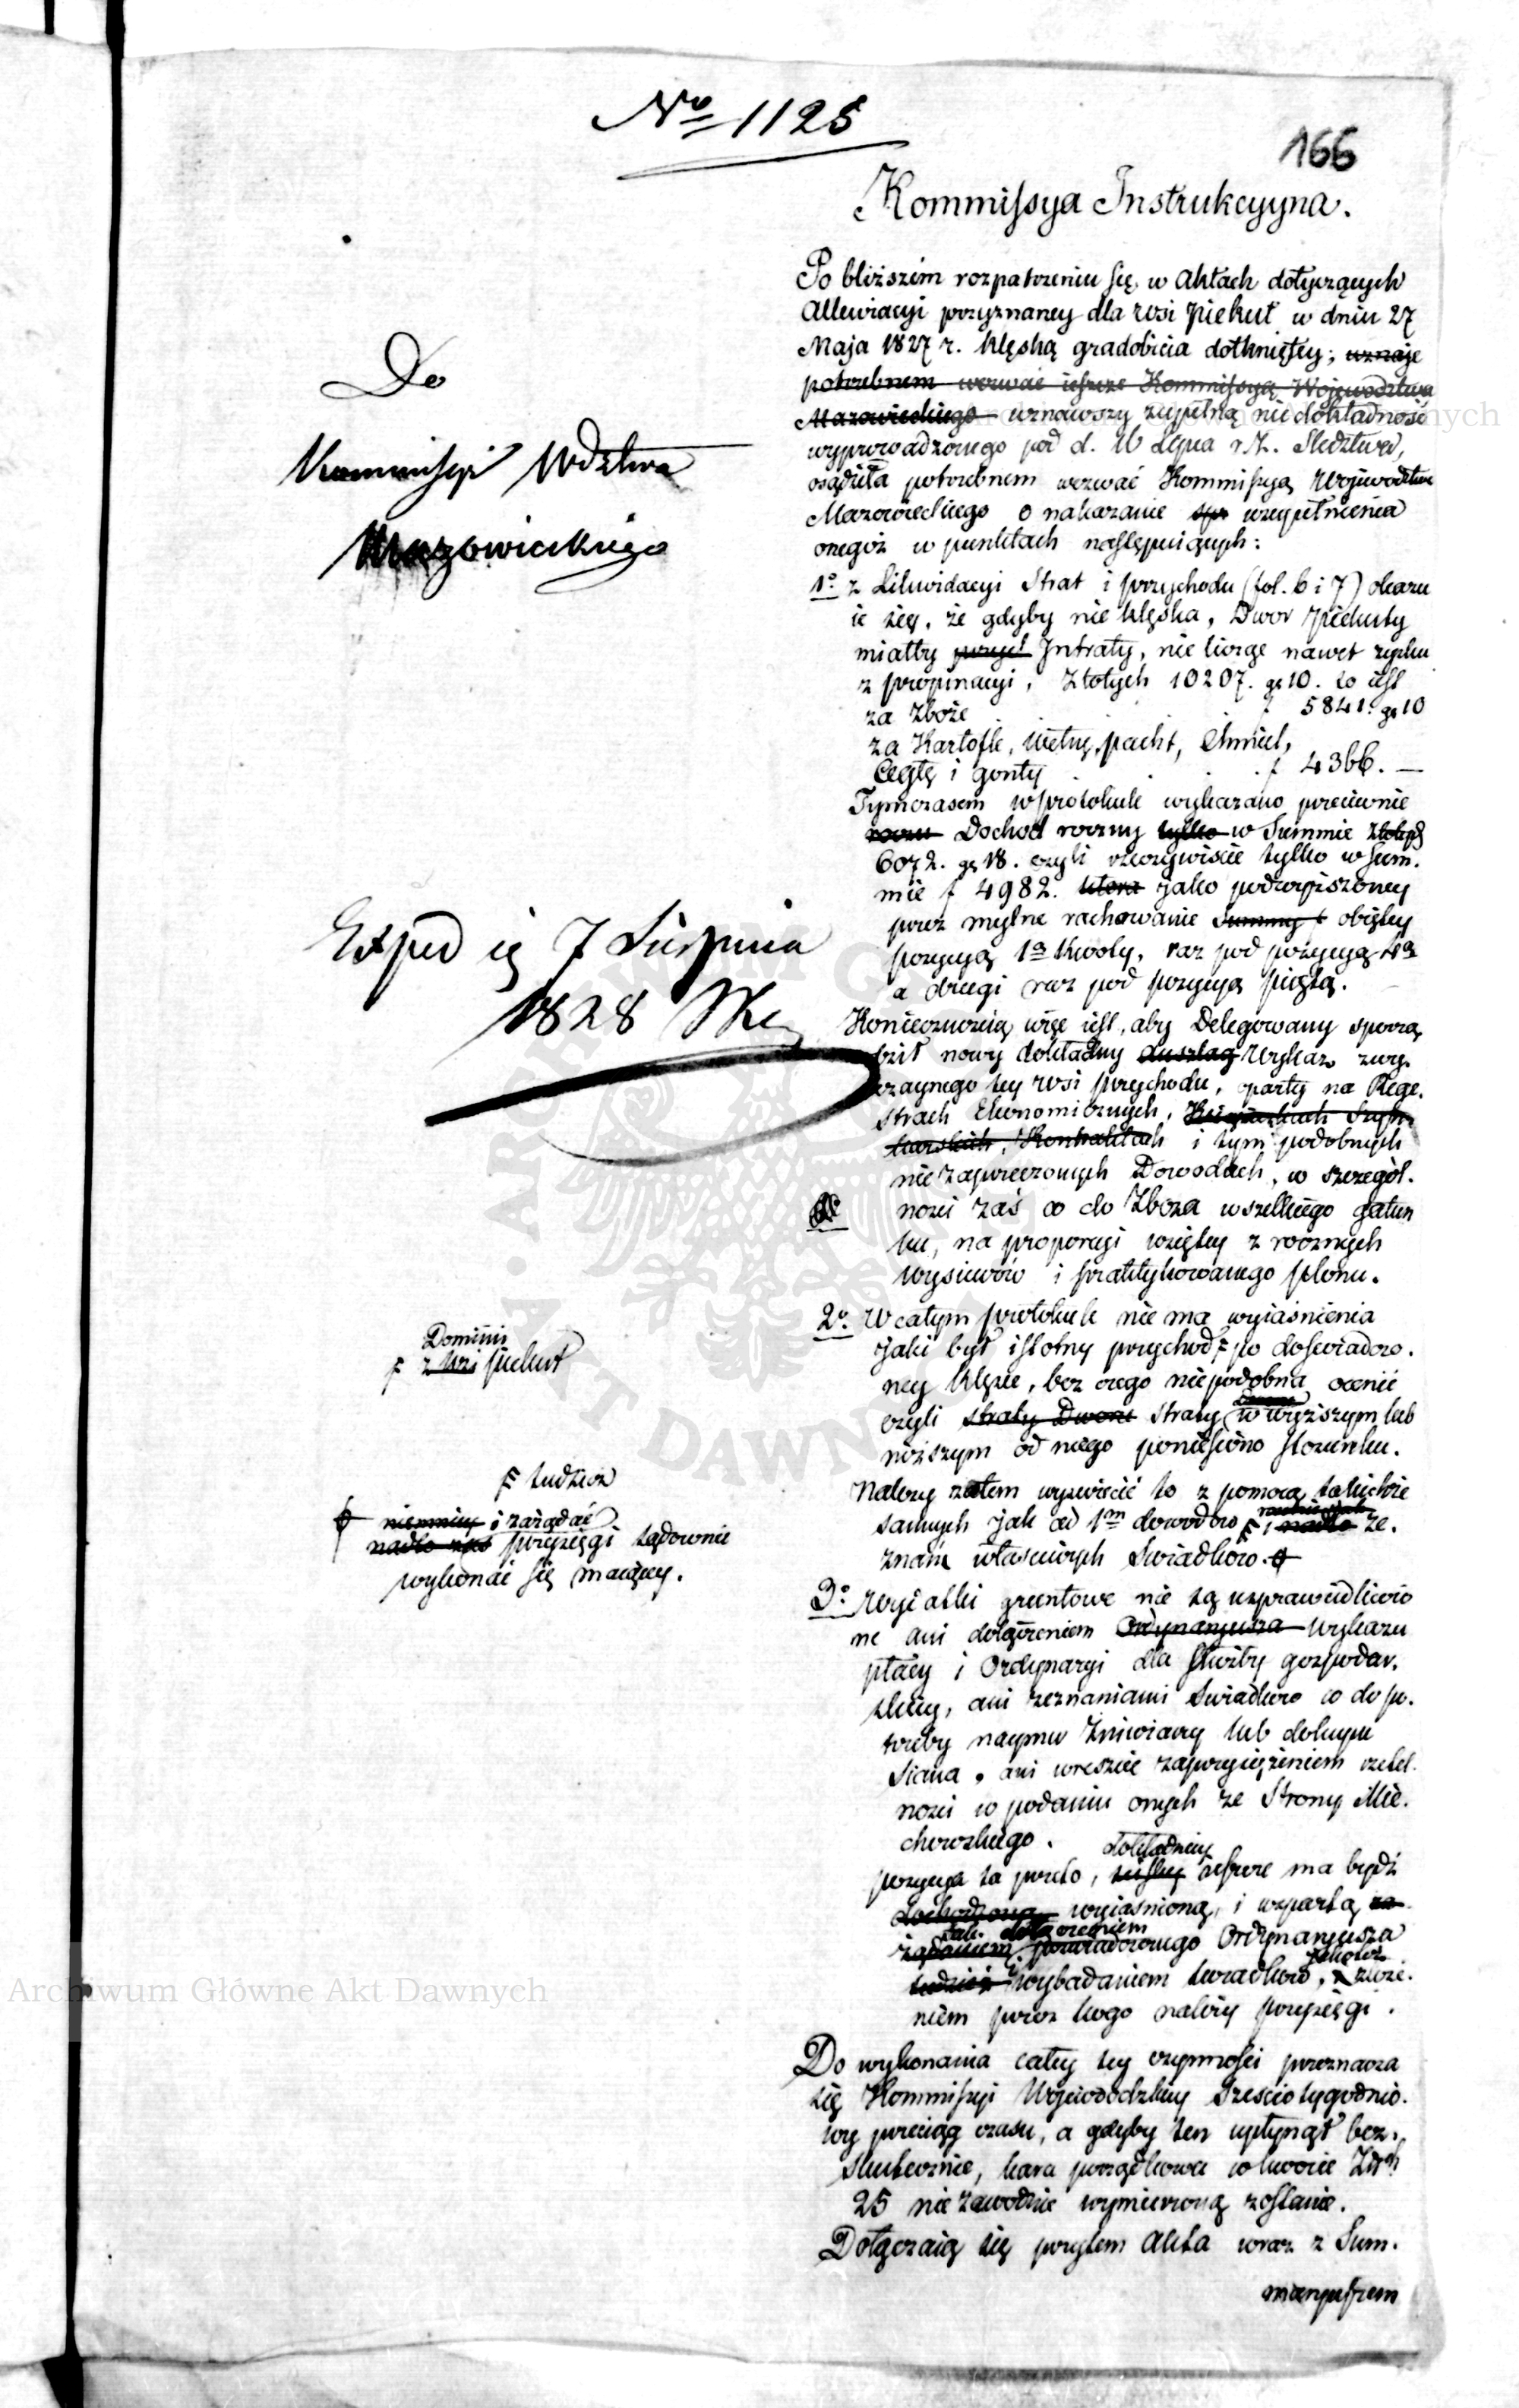 No 1125
166
Kommissya Instrukcyyna.
Po bliższém rozpatrzeniu się w Aktach dotyczących
Allewiacyi przyznaney dla wsi Piekut w dniu 27
Maja 1827 r. klęską gradobicia dotkniętey; uznaje
potrzebnem wezwać ieszcze Kommissyą Województwa
Mazowieckiego uznawszy zupełną niedokładność
wyprowadzonego pod d. 16 Lipca r. z. Sledztwa,
osądziła potrzebnem wezwać Kommissyą Województwa
Mazowieckiego o nakazanie uzupełnienia
onegoż w punktach następuiących:
1o z Likwidacyi Strat i przychodu (fol. 6 i 7) okazu
ie się, że gdyby nie klęska, Dwor Piekuty
miałby Intraty, nie licząc nawet zysku
z propinacyi, Złotych 10207. gr 10. to iest
za Zboże f 5841. gr 10
za Kartofle, wełnę, pacht, Chmiel,
Cegłę i gonty f 4366. —
Tymczasem w protokule wykazano przeciwnie
Dochod roczny tylko w Summie Złotych
6072. gr 18. czyli rzeczywiscie tylko w Sum.
mie f 4982. która jako podwyższoney
przez mylne rachowanie Summy obiętey
pozycyą 1a Kwoty, raz pod pozycyą 4a
a drugi raz pod pozycyą piątą.
Koniecznością więc iest, aby Delegowany sporzą
dził nowy dokładny Wykaz zwy.
czaynego tey wsi przychodu, oparty na Rege.
strach Ekonomicznych, Kontraktach i tym podobnych
niezaprzeczonych Dowodach, w szczegól.
ności zaś co do Zboża wszelkiego gatun
ku, na proporcyi wziętey z rocznych
wysiewów i praktykowanego plonu.
2o W całym protokule nie ma wyiaśnienia
jaki był istotny przychod po doświadczo.
ney klęsce, bez czego niepodobna ocenić
czyli straty Dwora straty w wyższym lub
niższym od niego poniesiono stosunku.
Należy zatem wyświecić to z pomocą takichże
samych jak ad 1m dowodów i nadto ze.
znań właściwych Swiadków.
3o Wydatki gruntowe nie są usprawiedliwio
ne ani dołączeniem Ordynaryusza Wykazu
płacy i Ordynaryi dla służby gospodar.
skiey, ani zeznaniami Swiadków co do po.
trzeby naymu Żniwiarzy lub dokupu
Siana, ani wreszcie zaprzysiężeniem rzetel.
ności w podaniu onych ze Strony Mie.
chowskiego.
dokładniey
pozycya ta przeto, ieszcze ma bydź
dochodzoną wyiaśnioną, i wspartą
dołączeniem
żądaniem poświadczonego Ordynaryusza
tudzież wybadaniem swiadków, złoże.
niem przez kogo należy przysięgi.
Do wykonania całey tey czynności przeznacza
się Kommissyi Wojewódzkiey Sześciotygodnio.
wy przeciąg czasu, a gdyby ten upłynął bez.
skutecznie, kara porządkowa w kwocie Złtch
25 niezawodnie wymierzoną zostanie.
Dołączaią się przytem Akta wraz z Sum.
maryuszem
Do
Kommissyi Wdztwa
Mazowieckiego
Exped ię 7 Sierpnia
1828
Dominii
z Wsi Piekut
tudzież
i zażądać
nadto zaś przysięgi sądownie
wykonać się maiącey.
Archiwum Główne Akt Dawnych
ARCHIWUM GŁÓWNE AKT DAWNYCH